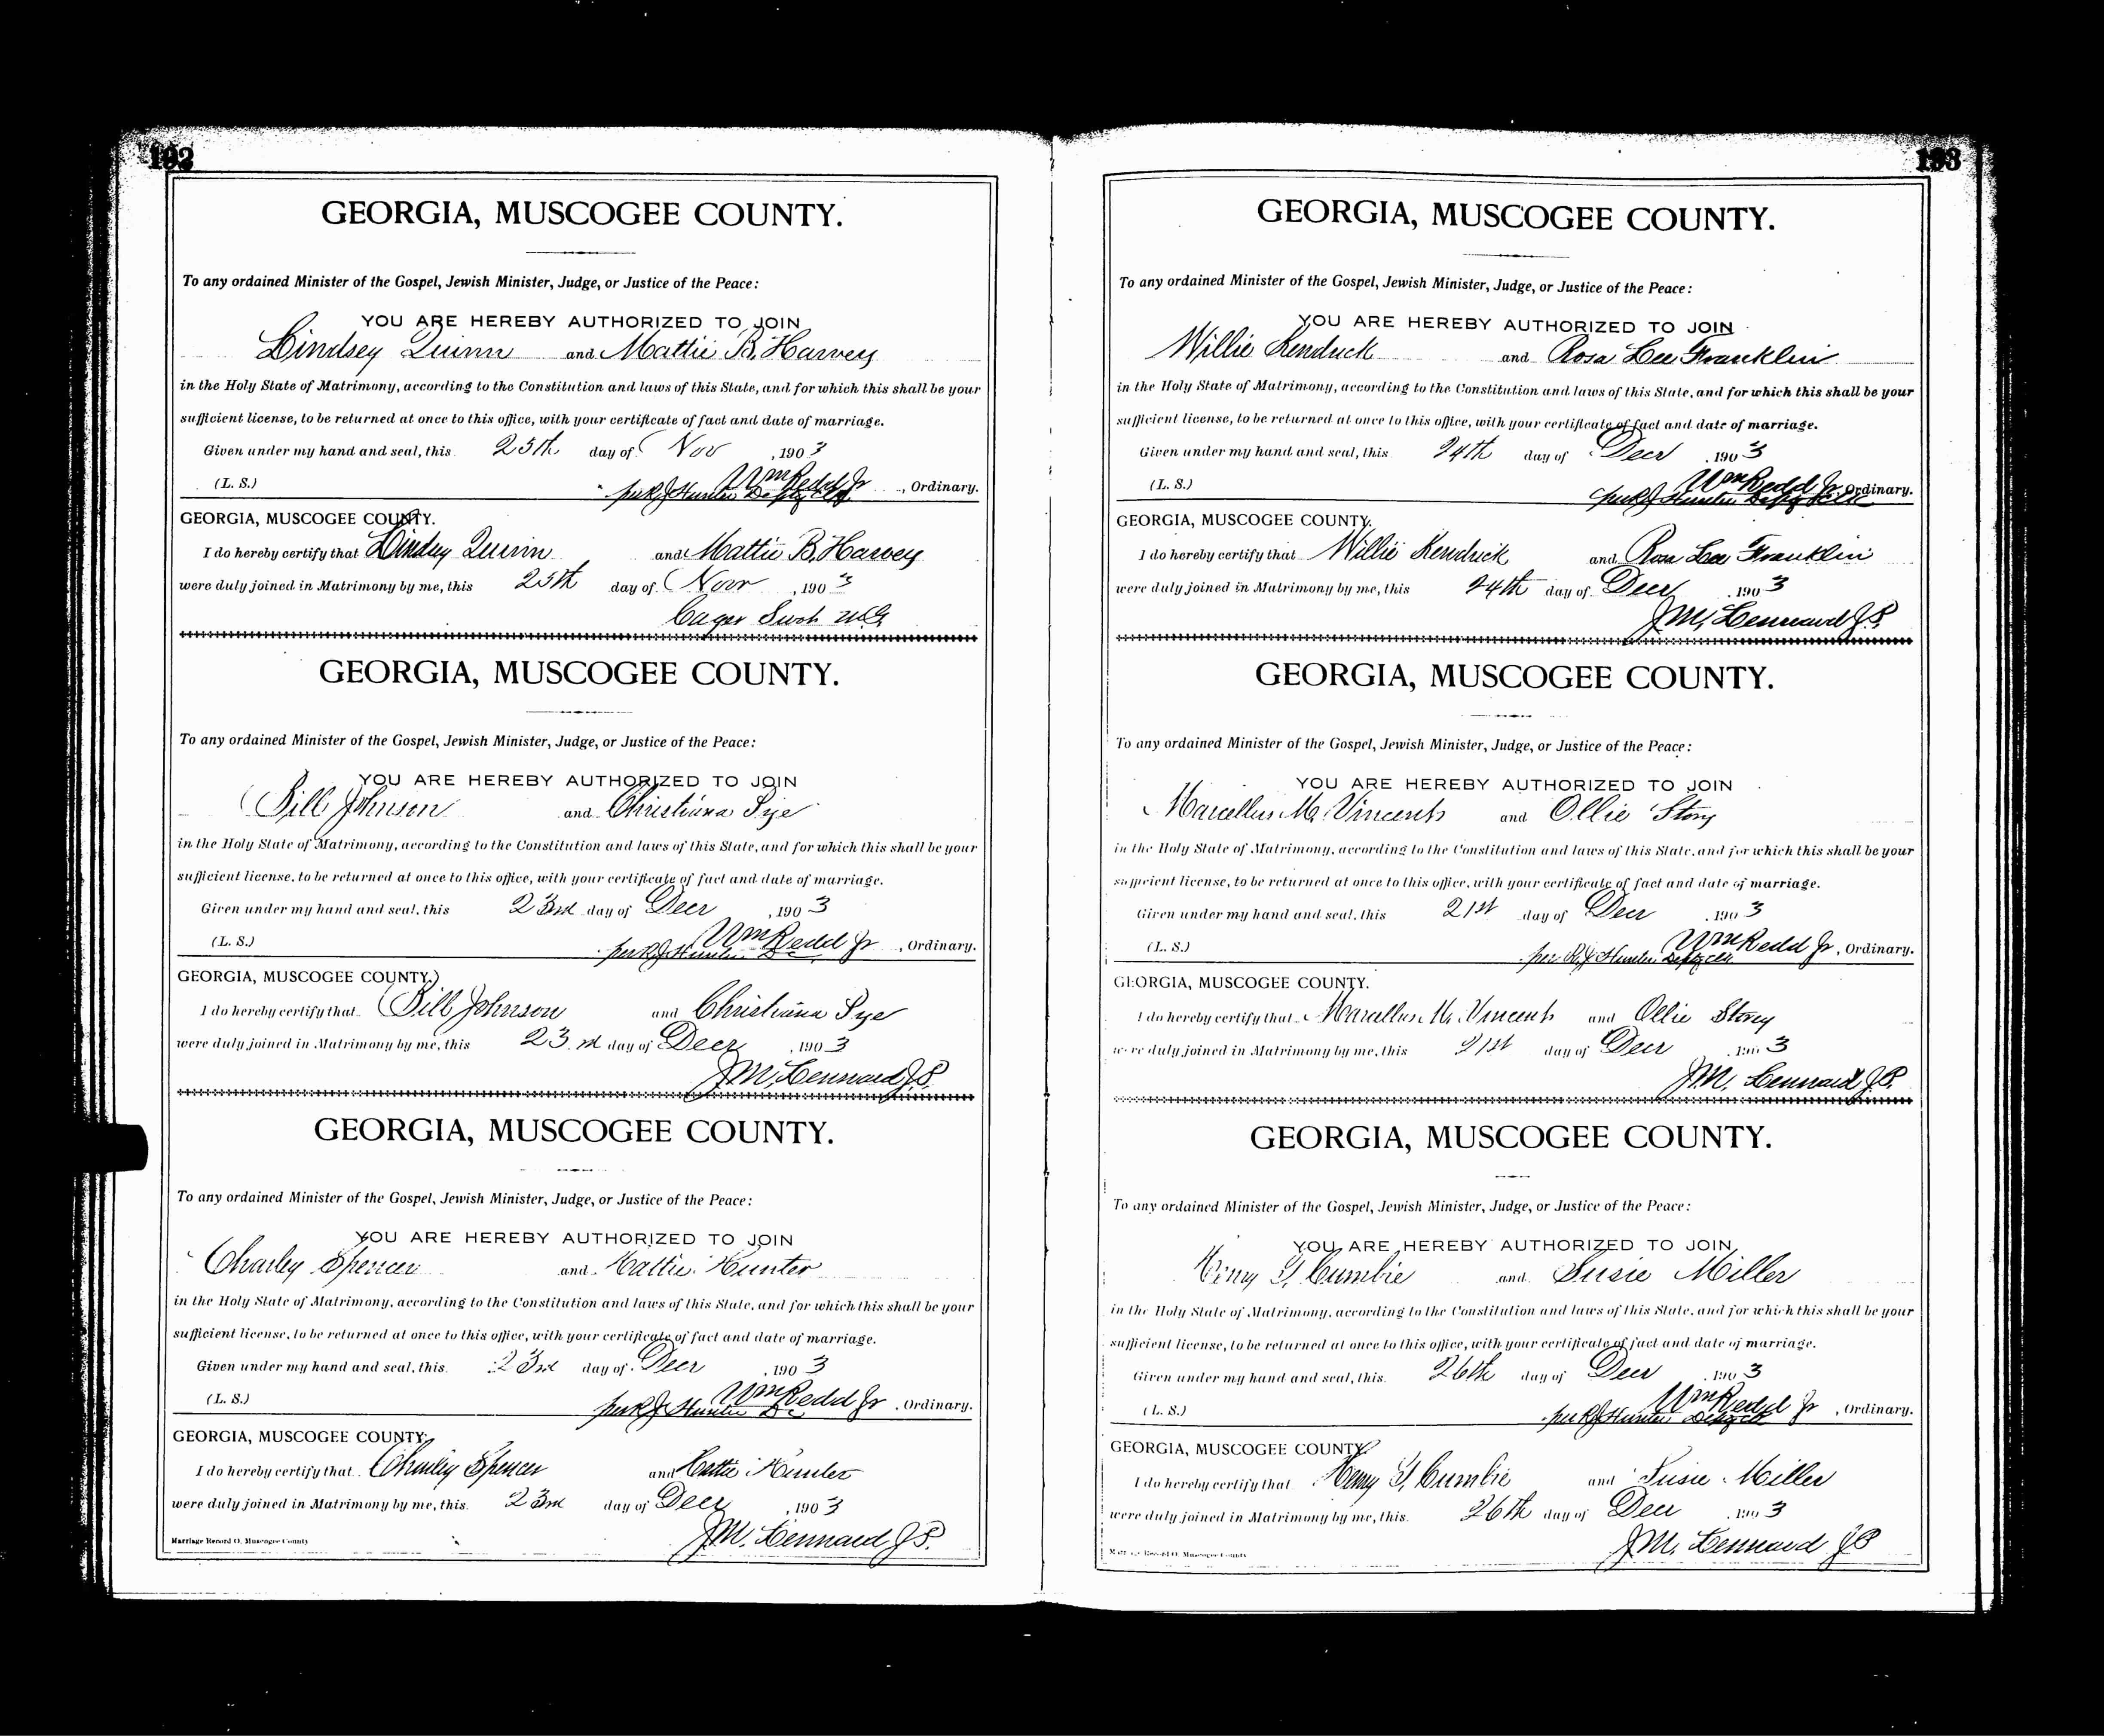 192
GEORGIA, MUSCOGEE COUNTY.
To any ordained Minister of the Gospel, Jewish Minister, Judge, or Justice of the Peace:
YOU ARE HEREBY AUTHORIZED TO JOIN
Lindsey Quinn and Mattie B. Harvey
in the Holy State of Matrimony, according to the Constitution and laws of this State, and for which this shall be your
sufficient license, to be returned at once to this office, with your certificate of fact and date of marriage.
Given under my hand and seal, this 25th day of Nov , 1903
(L. S.) Wm Redd Jr , Ordinary.
per R J Hunter Depty Clk
GEORGIA, MUSCOGEE COUNTY.
I do hereby certify that Lindsey Quinn and Mattie B. Harvey
were duly joined in Matrimony by me, this 25th day of Nov , 1903
Cager
GEORGIA, MUSCOGEE COUNTY.
To any ordained Minister of the Gospel, Jewish Minister, Judge, or Justice of the Peace:
YOU ARE HEREBY AUTHORIZED TO JOIN
Bill Johnson and Christiana Pye
in the Holy State of Matrimony, according to the Constitution and laws of this State, and for which this shall be your
sufficient license, to be returned at once to this office, with your certificate of fact and date of marriage.
Given under my hand and seal, this 23rd day of Decr , 1903
(L. S.) Wm Redd Jr , Ordinary.
per R J Hunter D C
GEORGIA, MUSCOGEE COUNTY.
I do hereby certify that Bill Johnson and Christiana Pye
were duly joined in Matrimony by me, this 23rd day of Decr , 1903
J.M. Lennard J.P.
GEORGIA, MUSCOGEE COUNTY.
To any ordained Minister of the Gospel, Jewish Minister, Judge, or Justice of the Peace:
YOU ARE HEREBY AUTHORIZED TO JOIN
Charley Spencer and Hattie Hunter
in the Holy State of Matrimony, according to the Constitution and laws of this State, and for which this shall be your
sufficient license, to be returned at once to this office, with your certificate of fact and date of marriage.
Given under my hand and seal, this 23rd day of Decr , 1903
(L. S.) Wm Redd Jr , Ordinary.
per R J Hunter D C
GEORGIA, MUSCOGEE COUNTY.
I do hereby certify that Charley Spencer and Hattie Hunter
were duly joined in Matrimony by me, this 23rd day of Decr , 1903
J.M. Lennard J.P.
Marriage Record O, Muscogee County
193
GEORGIA, MUSCOGEE COUNTY.
To any ordained Minister of the Gospel, Jewish Minister, Judge, or Justice of the Peace:
YOU ARE HEREBY AUTHORIZED TO JOIN
Willie Kendrick and Rosa Lee Franklin
in the Holy State of Matrimony, according to the Constitution and laws of this State, and for which this shall be your
sufficient license, to be returned at once to this office, with your certificate of fact and date of marriage.
Given under my hand and seal, this 24th day of Decr , 1903
(L. S.) Wm Redd Jr, Ordinary.
per R J Hunter Depty Clk
GEORGIA, MUSCOGEE COUNTY.
I do hereby certify that Willie Kendrick and Rosa Lee Franklin
were duly joined in Matrimony by me, this 24th day of Decr , 1903
J.M. Lennard J.P.
GEORGIA, MUSCOGEE COUNTY.
To any ordained Minister of the Gospel, Jewish Minister, Judge, or Justice of the Peace:
YOU ARE HEREBY AUTHORIZED TO JOIN
Marcellus M. Vincents and Ollie Story
in the Holy State of Matrimony, according to the Constitution and laws of this State, and for which this shall be your
sufficient license, to be returned at once to this office, with your certificate of fact and date of marriage.
Given under my hand and seal, this 21st day of Decr , 1903
(L. S.) Wm Redd Jr , Ordinary.
per R J Hunter Depty Clk
GEORGIA, MUSCOGEE COUNTY.
I do hereby certify that Marcellus M. Vincents and Ollie Story
were duly joined in Matrimony by me, this 21st day of Decr , 1903
J.M. Lennard J.P.
GEORGIA, MUSCOGEE COUNTY.
To any ordained Minister of the Gospel, Jewish Minister, Judge, or Justice of the Peace:
YOU ARE HEREBY AUTHORIZED TO JOIN
Henry T. Cumbie and Susie Miller
in the Holy State of Matrimony, according to the Constitution and laws of this State, and for which this shall be your
sufficient license, to be returned at once to this office, with your certificate of fact and date of marriage.
Given under my hand and seal, this 26th day of Decr , 1903
(L. S.) Wm Redd Jr , Ordinary.
per R J Hunter Depty Clk
GEORGIA, MUSCOGEE COUNTY.
I do hereby certify that Henry T. Cumbie and Susie Miller
were duly joined in Matrimony by me, this 26th day of Decr , 1903
J.M. Lennard J.P.
Marriage Record O, Muscogee County